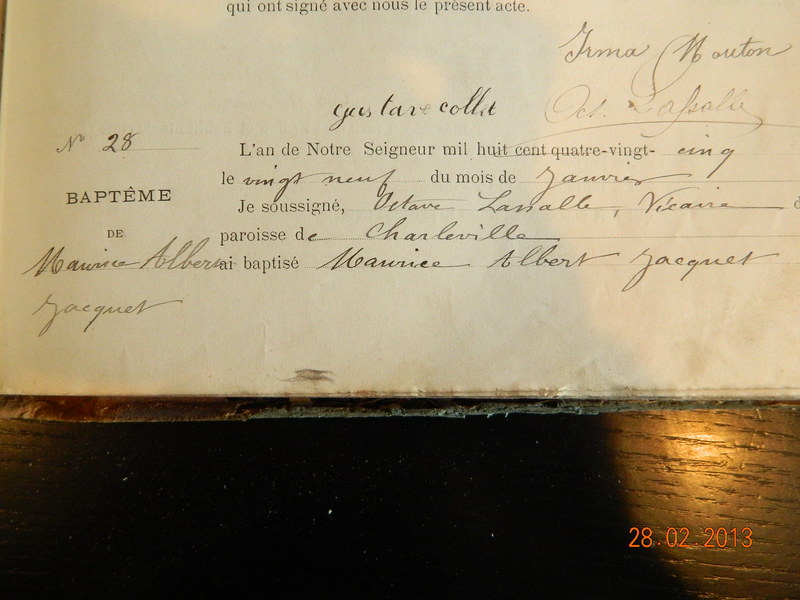 qui ont signé avec nous le présent acte.
Irma Mouton
gustave collet Oct. Lassalle
N° 28 L'an de Notre Seigneur mil huit cent quatre-vingt- cinq
le vingt neuf du mois de Janvier
BAPTÊME Je soussigné, Octave Lassalle, Vicaire d
DE paroisse de Charleville
Maurice Albert ai baptisé Maurice Albert Jacquet
Jacquet
28.02.2013